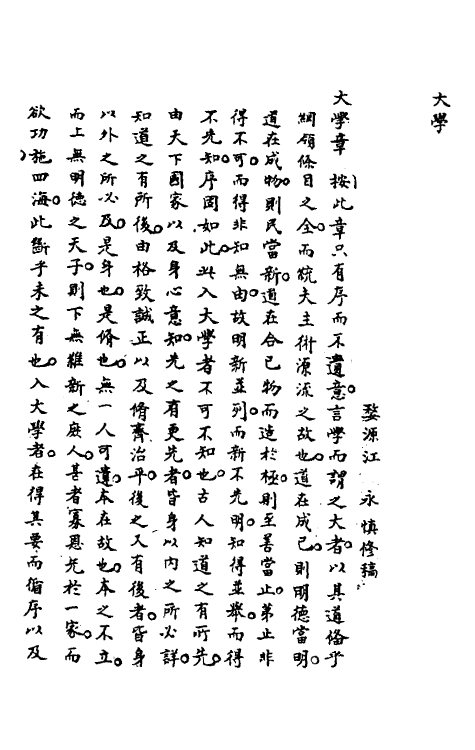 大學
婺源江　永慎修稿
大學章　按此章只有序而不遺意言學而謂之大者以其道偹乎
綱領條目之全而統夫主術源流之故也道在成己則明德當明
道在成物則民當新道在合己物而造於極則至善當止第止非
得不可而得非知無由故明新並列而新不先明知得並舉而得
不先知序固如此此入大學者不可不知也古人知道之有所先
由天下國家以及身心意知先之有更先者皆身以內之所必詳
知道之有所後由格致誠正以及脩齊治平後之又有後者皆身
以外之所必及是身也是脩也無一人可遺本在故也本之不立
而上無明德之天子則下無維新之庶人甚者寡恩先於一家而
欲功施四海此斷乎未之有也入大學者在得其要而循序以及